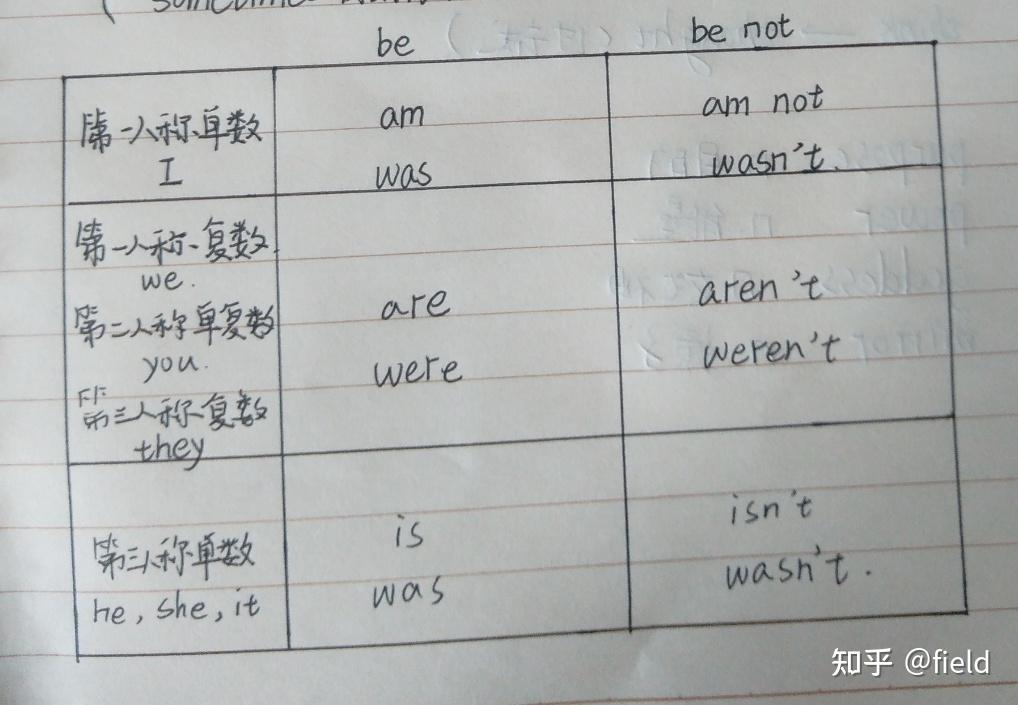 ( sometimes
be be not
第一人称单数
I
am
was
am not
wasn't.
第一人称复数
we.
第二人称单复数
you.
第三人称复数
they
are
were
aren't
weren't
第三人称单数
he, she, it
is
was
isn't
wasn't.
知乎 @field